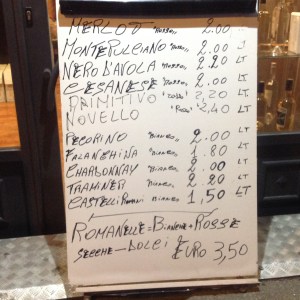 MERLOT "Rosso" 2.00
MONTEPULCIANO "Rosso" 2.00 LT
NERO D'AVOLA "Rosso" 2.20 LT
CESANESE "Rosso" 2.00 LT
PRIMITIVO "Rosso" 2,20 LT
NOVELLO "Rosso" 2,40 LT
PECORINO "Bianco" 2.00 LT
FALANGHINA "Bianco" 1.80 LT
CHARDONNAY "Bianco" 2.00 LT
TRAMINER "Bianco" 2.20 LT
CASTELLI Romani Bianco 1,50 LT
ROMANELLE = BIANCHE + ROSSE
SECCHE — DOLCI EURO 3,50